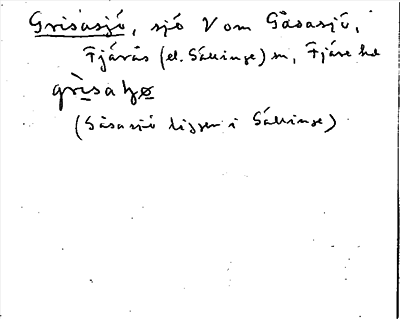 Grisasjö, sjö V om Gåsasjö,
Fjärås (el. Sällinge) sn, Fjäre hd
grìsahø
(Gåsasjö ligger i Sällinge)